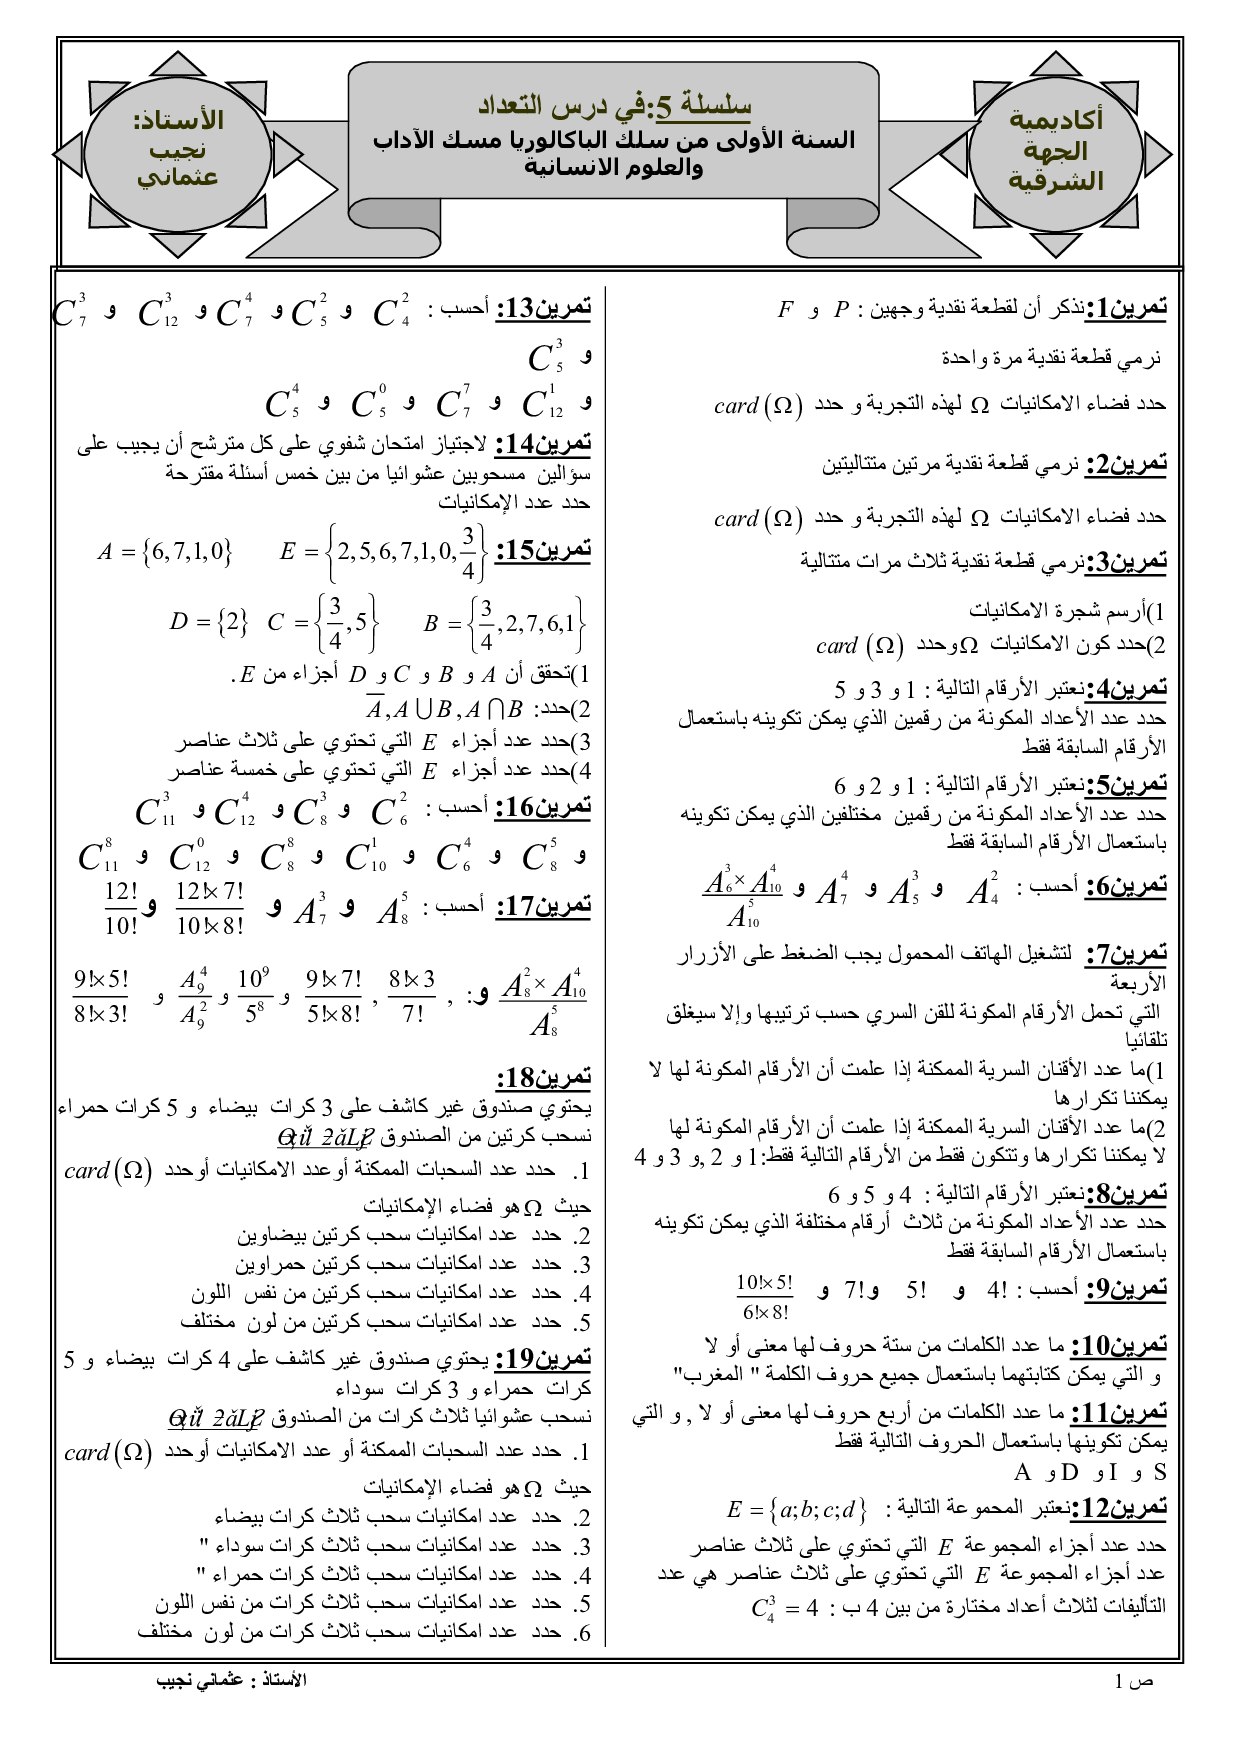 أكاديمية
الجهة
الشرقية
سلسلة 5:في درس التعداد
السنة الأولى من سلك الباكالوريا مسك الآداب
والعلوم الانسانية
الأستاذ:
نجيب
عثماني
تمرين1:نذكر أن لقطعة نقدية وجهين : P و F
نرمي قطعة نقدية مرة واحدة
حدد فضاء الامكانيات Ω لهذه التجربة و حدد card(Ω)
تمرين2: نرمي قطعة نقدية مرتين متتاليتين
حدد فضاء الامكانيات Ω لهذه التجربة و حدد card(Ω)
تمرين3:نرمي قطعة نقدية ثلاث مرات متتالية
1)أرسم شجرة الامكانيات
2)حدد كون الامكانيات Ω وحدد card(Ω)
تمرين4:نعتبر الأرقام التالية : 1 و 3 و 5
حدد عدد الأعداد المكونة من رقمين الذي يمكن تكوينه باستعمال
الأرقام السابقة فقط
تمرين5:نعتبر الأرقام التالية : 1 و 2 و 6
حدد عدد الأعداد المكونة من رقمين مختلفين الذي يمكن تكوينه
باستعمال الأرقام السابقة فقط
تمرين6: أحسب : A_4^2 و A_5^3 و A_7^4 و (A_6^3 × A_10^4)/A_10^5
تمرين7: لتشغيل الهاتف المحمول يجب الضغط على الأزرار
الأربعة
التي تحمل الأرقام المكونة للقن السري حسب ترتيبها وإلا سيغلق
تلقائيا
1)ما عدد الأقنان السرية الممكنة إذا علمت أن الأرقام المكونة لها لا
يمكننا تكرارها
2)ما عدد الأقنان السرية الممكنة إذا علمت أن الأرقام المكونة لها
لا يمكننا تكرارها وتتكون فقط من الأرقام التالية فقط:1 و 2 ,و 3 و 4
تمرين8:نعتبر الأرقام التالية : 4 و 5 و 6
حدد عدد الأعداد المكونة من ثلاث أرقام مختلفة الذي يمكن تكوينه
باستعمال الأرقام السابقة فقط
تمرين9: أحسب : 4! و 5! و 7! و (10!×5!)/(6!×8!)
تمرين10: ما عدد الكلمات من ستة حروف لها معنى أو لا
و التي يمكن كتابتهما باستعمال جميع حروف الكلمة " المغرب"
تمرين11: ما عدد الكلمات من أربع حروف لها معنى أو لا , و التي
يمكن تكوينها باستعمال الحروف التالية فقط
S و I و D و A
تمرين12:نعتبر المحموعة التالية : E = {a;b;c;d}
حدد عدد أجزاء المجموعة E التي تحتوي على ثلاث عناصر
عدد أجزاء المجموعة E التي تحتوي على ثلاث عناصر هي عدد
التأليفات لثلاث أعداد مختارة من بين 4 ب : C_4^3 = 4
تمرين13: أحسب : C_4^2 و C_5^2 و C_7^4 و C_12^3 و C_7^3
و C_5^3
و C_12^1 و C_7^7 و C_5^0 و C_5^4
تمرين14: لاجتياز امتحان شفوي على كل مترشح أن يجيب على
سؤالين مسحوبين عشوائيا من بين خمس أسئلة مقترحة
حدد عدد الإمكانيات
تمرين15: E = {2,5,6,7,1,0,3/4} A = {6,7,1,0}
B = {3/4,2,7,6,1} C = {3/4,5} D = {2}
1)تحقق أن A و B و C و D أجزاء من E .
2)حدد: A̅ , A ⋃ B , A ⋂ B
3)حدد عدد أجزاء E التي تحتوي على ثلاث عناصر
4)حدد عدد أجزاء E التي تحتوي على خمسة عناصر
تمرين16: أحسب : C_6^2 و C_8^3 و C_12^4 و C_11^3
و C_8^5 و C_6^4 و C_10^1 و C_8^8 و C_12^0 و C_11^8
تمرين17: أحسب : A_8^5 و A_7^3 و (12!×7!)/(10!×8!) و 12!/10!
(A_8^2 × A_10^4)/A_8^5 و: , (8!×3)/7! , (9!×7!)/(5!×8!) و 10^9/5^8 و A_9^4/A_9^2 و (9!×5!)/(8!×3!)
تمرين18:
يحتوي صندوق غير كاشف على 3 كرات بيضاء و 5 كرات حمراء
نسحب كرتين من الصندوق
1. حدد عدد السحبات الممكنة أوعدد الامكانيات أوحدد card(Ω)
حيث Ω هو فضاء الإمكانيات
2. حدد عدد امكانيات سحب كرتين بيضاوين
3. حدد عدد امكانيات سحب كرتين حمراوين
4. حدد عدد امكانيات سحب كرتين من نفس اللون
5. حدد عدد امكانيات سحب كرتين من لون مختلف
تمرين19: يحتوي صندوق غير كاشف على 4 كرات بيضاء و 5
كرات حمراء و 3 كرات سوداء
نسحب عشوائيا ثلاث كرات من الصندوق
1. حدد عدد السحبات الممكنة أو عدد الامكانيات أوحدد card(Ω)
حيث Ω هو فضاء الإمكانيات
2. حدد عدد امكانيات سحب ثلاث كرات بيضاء
3. حدد عدد امكانيات سحب ثلاث كرات سوداء "
4. حدد عدد امكانيات سحب ثلاث كرات حمراء "
5. حدد عدد امكانيات سحب ثلاث كرات من نفس اللون
6. حدد عدد امكانيات سحب ثلاث كرات من لون مختلف
ص 1
الأستاذ : عثماني نجيب